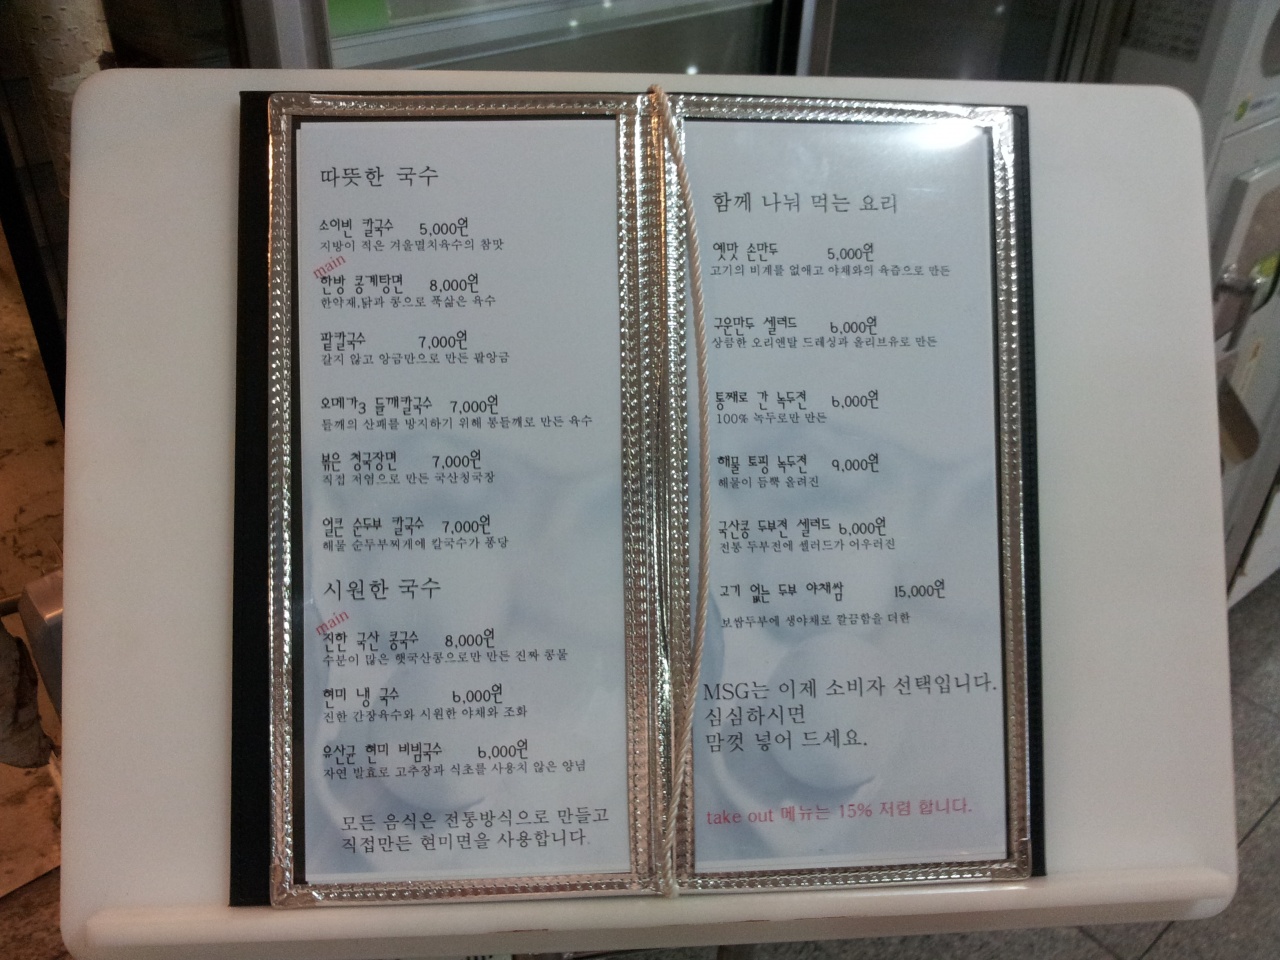 따뜻한 국수
소이빈 칼국수 5,000원
지방이 적은 겨울멸치육수의 참맛
main
한방 콩계탕면 8,000원
한약재,닭과 콩으로 푹삶은 육수
팥칼국수 7,000원
갈지 않고 앙금만으로 만든 팥앙금
오메가3 들깨칼국수 7,000원
들깨의 산패를 방지하기 위해 통들깨로 만든 육수
볶은 청국장면 7,000원
직접 저염으로 만든 국산청국장
얼큰 순두부 칼국수 7,000원
해물 순두부찌개에 칼국수가 퐁당
시원한 국수
main
진한 국산 콩국수 8,000원
수분이 많은 햇국산콩으로만 만든 진짜 콩물
현미 냉 국수 6,000원
진한 간장육수와 시원한 야채와 조화
유산균 현미 비빔국수 6,000원
자연 발효로 고추장과 식초를 사용치 않은 양념
모든 음식은 전통방식으로 만들고
직접만든 현미면을 사용합니다.
함께 나눠 먹는 요리
옛맛 손만두 5,000원
고기의 비계를 없애고 야채와의 육즙으로 만든
구운만두 샐러드 6,000원
상큼한 오리앤탈 드레싱과 올리브유로 만든
통째로 간 녹두전 6,000원
100% 녹두로만 만든
해물 토핑 녹두전 9,000원
해물이 듬뿍 올려진
국산콩 두부전 샐러드 6,000원
전통 두부전에 샐러드가 어우러진
고기 없는 두부 야채쌈 15,000원
보쌈두부에 생야채로 깔끔함을 더한
MSG는 이제 소비자 선택입니다.
심심하시면
맘껏 넣어 드세요.
take out 메뉴는 15% 저렴 합니다.